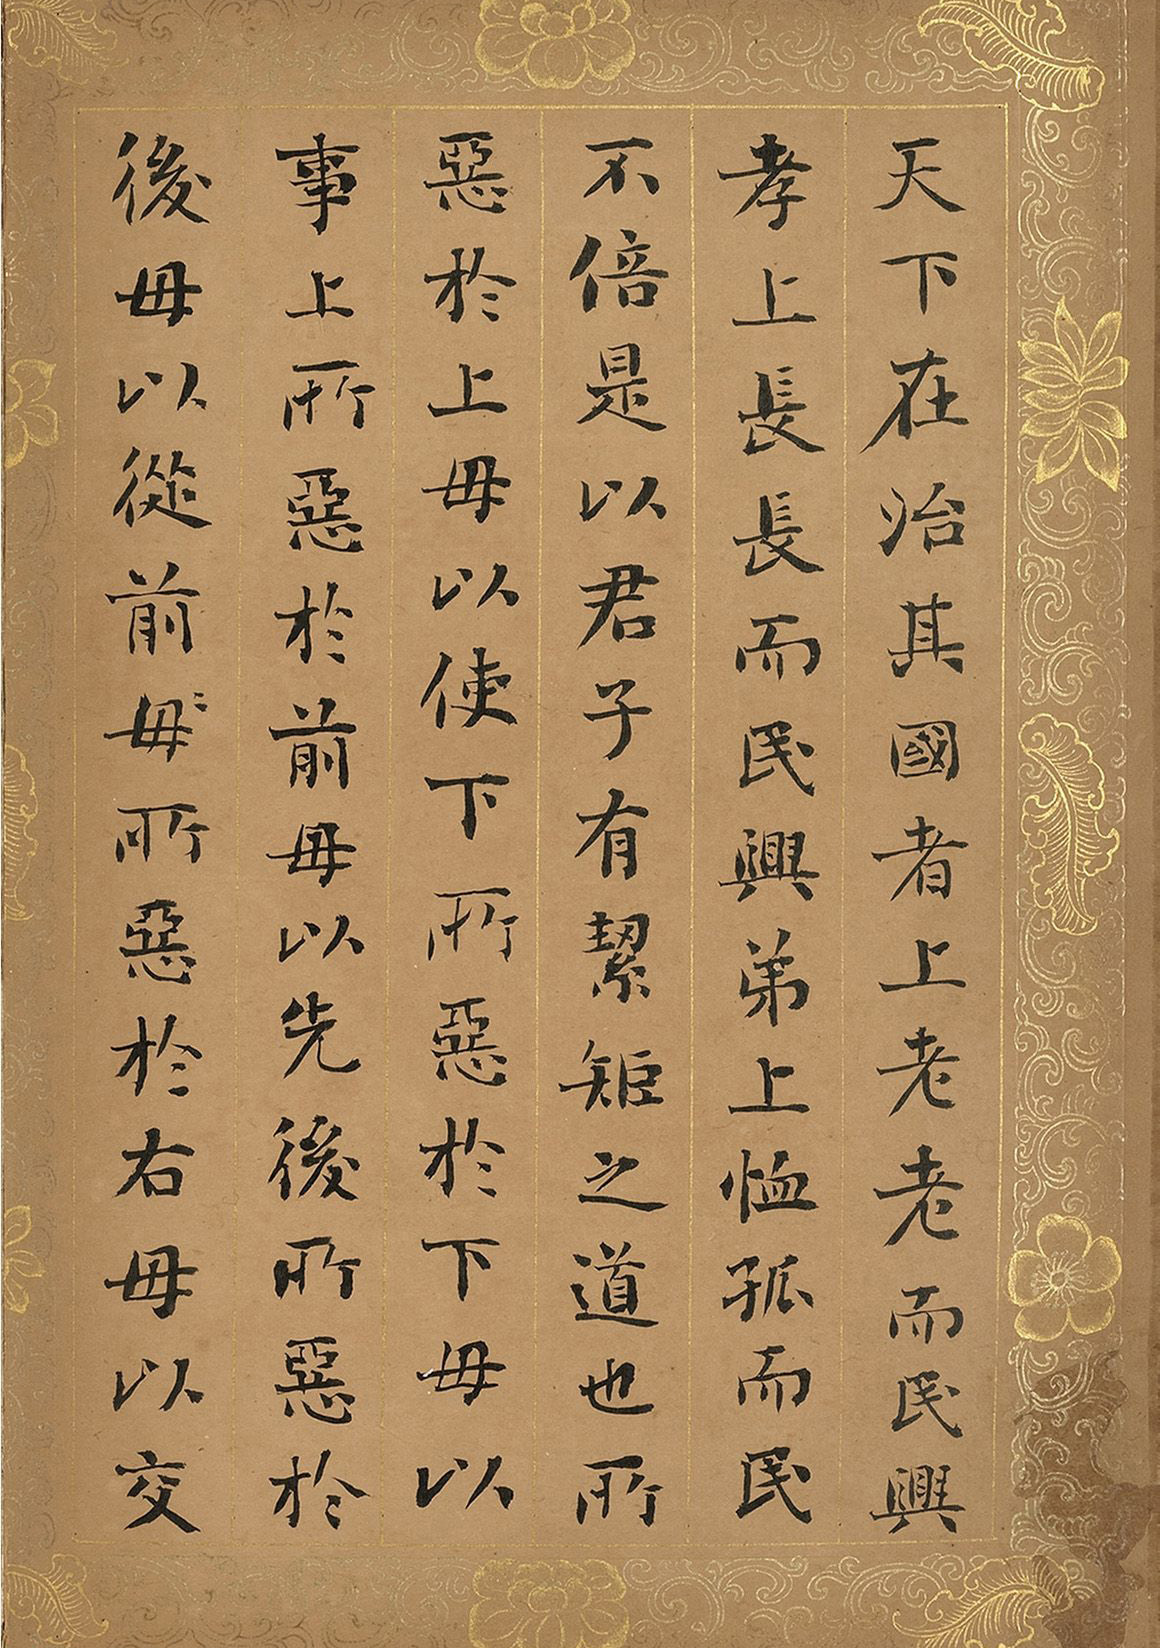 天下在治其國者上老老而民興
孝上長長而民興弟上恤孤而民
不倍是以君子有絜矩之道也所
惡於上毋以使下所惡於下毋以
事上所惡於前毋以先後所惡於
後毋以從前毋所惡於右毋以交